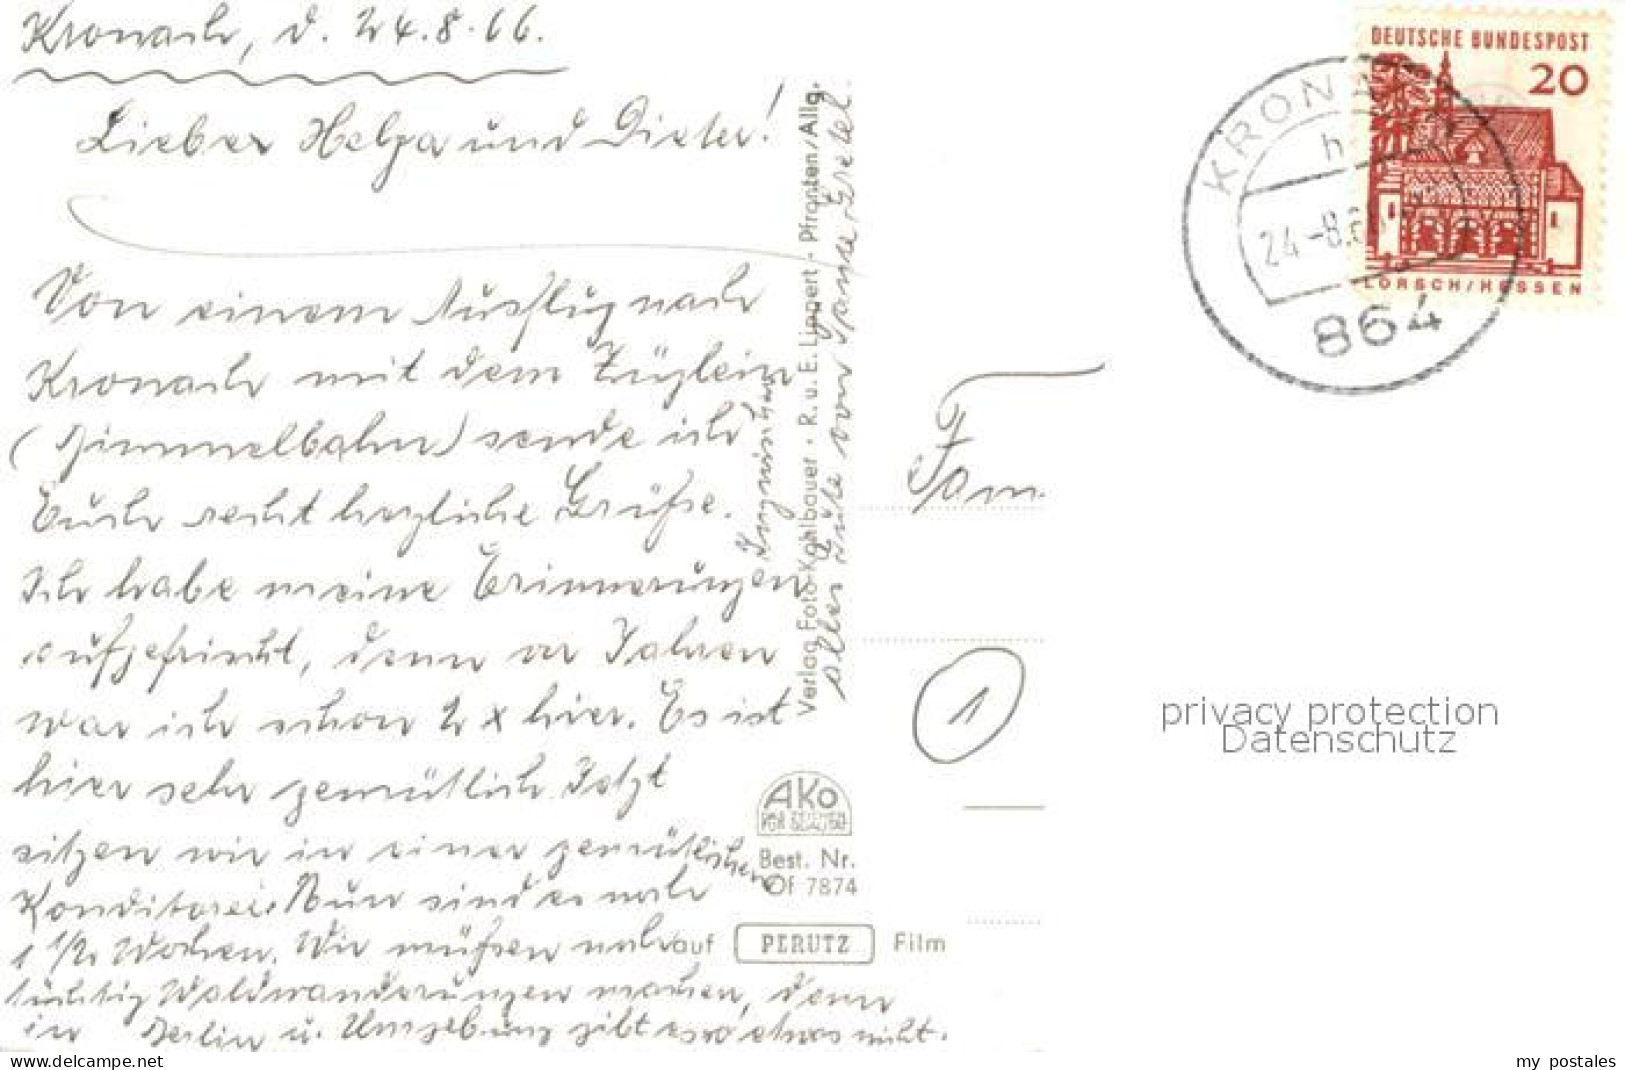 Kronach, d. 24.8.66.
Liebe Helga und Dieter!
Von einem Ausflug nach
Kronach mit dem Züglein
(Bimmelbahn) sende ich
Euch recht herzliche Grüße.
Ich habe meine Erinnerungen
aufgefrischt, denn vor Jahren
war ich schon 2 x hier. Es ist
hier sehr gemütlich. Jetzt
sitzen wir in einer gemütlichen
Konditorei. Nun sind es noch
1 1/2 Wochen. Wir müßen noch
tüchtig Waldwanderungen machen, denn
in Berlin u. Umgebung gibt es so etwas nicht.
Inzwischen
alles Gute von Tante Gretel.
Verlag Foto Kohlbauer · R. u. E. Lippert · Pfronten/Allg.
AKO
Best. Nr.
OF 7874
auf PERUTZ Film
DEUTSCHE BUNDESPOST
20
LORSCH/HESSEN
KRONACH
h
24.-8.66
864
Fam.
1
privacy protection
Datenschutz
delcampe.net
my_postales